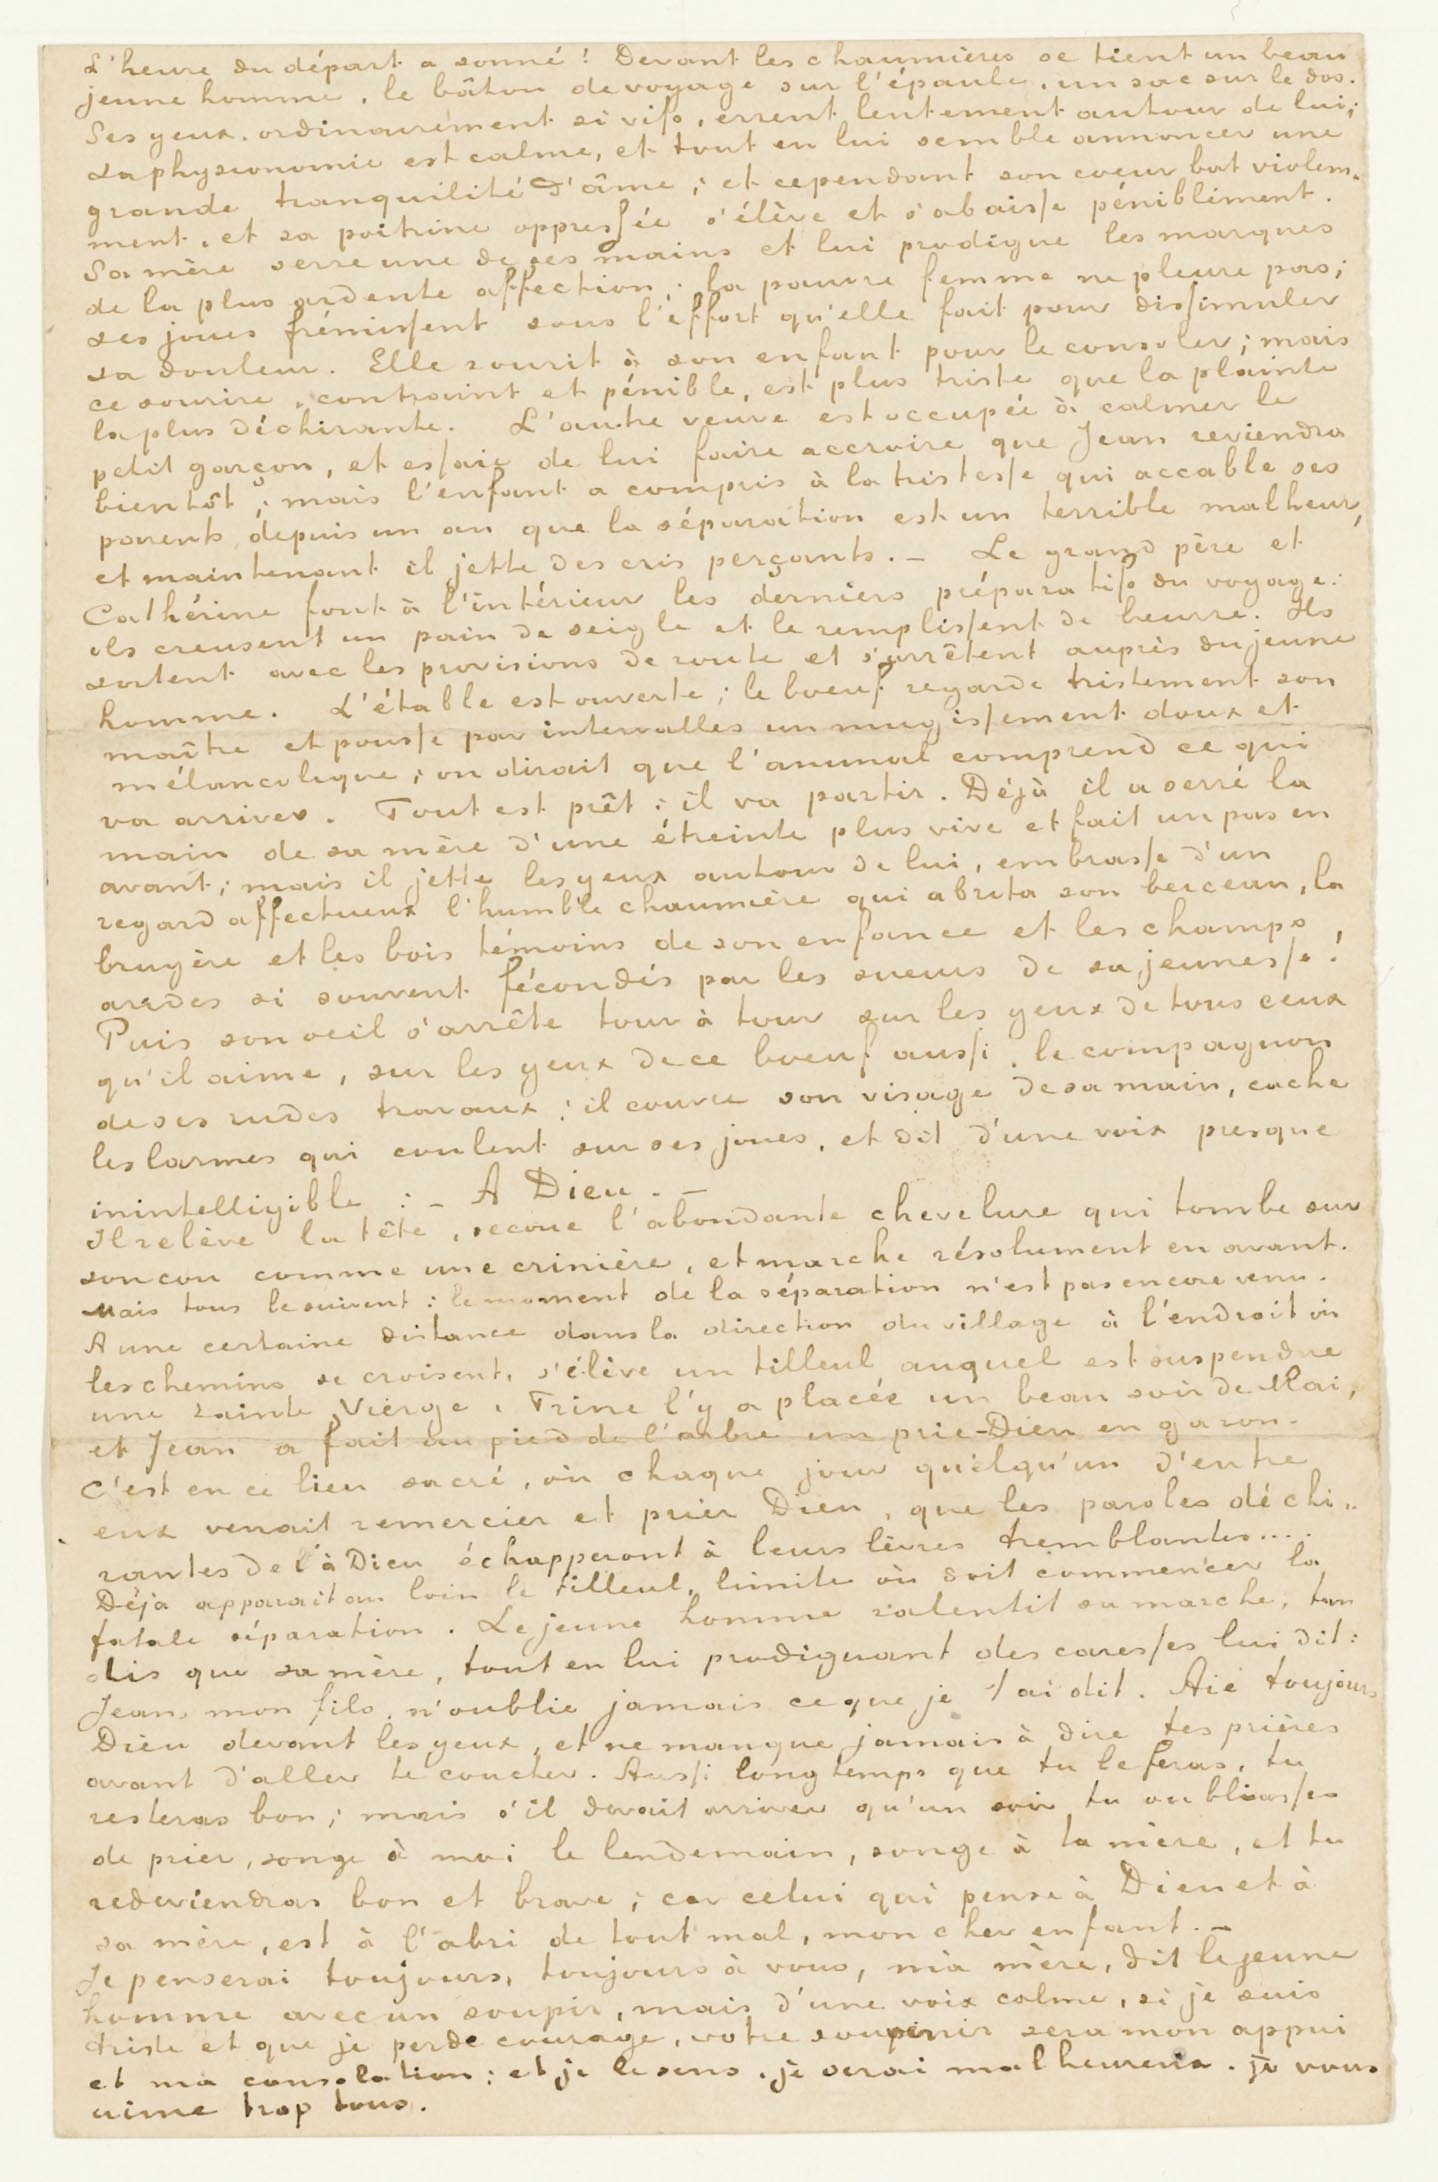 L'heure du départ a sonné ! Devant les chaumières se tient un beau
jeune homme, le bâton de voyage sur l'épaule, un sac sur le dos.
Ses yeux, ordinairement si vifs, errent lentement autour de lui;
sa physionomie est calme, et tout en lui semble annoncer une
grande tranquilité d'âme ; et cependant son coeur bat violem-
ment, et sa poitrine oppressée s'élève et s'abaisse péniblement.
Sa mère serre une de ses mains et lui prodigue les marques
de la plus ardente affection. La pauvre femme ne pleure pas;
ses joues frémissent sous l'effort qu'elle fait pour dissimuler
sa douleur. Elle sourit à son enfant pour le consoler ; mais
ce sourire, contraint et pénible, est plus triste que la plainte
la plus déchirante. L'autre veuve est occupée à calmer le
petit garçon, et essaie de lui faire accroire que Jean reviendra
bientôt ; mais l'enfant a compris à la tristesse qui accable ses
parents depuis un an que la séparation est un terrible malheur,
et maintenant il jette des cris perçants. — Le grand père et
Cathérine font à l'intérieur les derniers préparatifs du voyage :
ils creusent un pain de seigle et le remplissent de beurre. Ils
sortent avec les provisions de route et s'arrêtent auprès du jeune
homme. L'étable est ouverte ; le boeuf regarde tristement son
maître et pousse par intervalles un mugissement doux et
mélancolique ; on dirait que l'animal comprend ce qui
va arriver. Tout est prêt ; il va partir. Déjà il a serré la
main de sa mère d'une étreinte plus vive et fait un pas en
avant ; mais il jette les yeux autour de lui, embrasse d'un
regard affectueux l'humble chaumière qui abrita son berceau, la
bruyère et les bois témoins de son enfance et les champs
arides si souvent fécondés par les sueurs de sa jeunesse !
Puis son oeil s'arrête tour à tour sur les yeux de tous ceux
qu'il aime, sur les yeux de ce boeuf aussi, le compagnon
de ses rudes travaux ; il couvre son visage de sa main, cache
les larmes qui coulent sur ses joues, et dit d'une voix presque
inintelligible : — A Dieu. —
Il relève la tête, secoue l'abondante chevelure qui tombe sur
son cou comme une crinière, et marche résolument en avant.
Mais tous le suivent : le moment de la séparation n'est pas encore venu.
A une certaine distance dans la direction du village à l'endroit où
les chemins se croisent, s'élève un tilleul auquel est suspendue
une sainte Vierge. Trine l'y a placée un beau soir de Mai,
et Jean a fait au pied de l'arbre un prie-Dieu en gazon.
C'est en ce lieu sacré, où chaque jour quelqu'un d'entre
eux venait remercier et prier Dieu, que les paroles déchi-
rantes de l'à Dieu échapperont à leurs lèvres tremblantes....
Déjà apparait au loin le tilleul, limite où doit commencer la
fatale séparation. Le jeune homme ralentit sa marche, tan
dis que sa mère, tout en lui prodiguant des caresses lui dit :
Jean, mon fils, n'oublie jamais ce que je t'ai dit. Aie toujours
Dieu devant les yeux, et ne manque jamais à dire tes prières
avant d'aller te coucher. Aussi longtemps que tu le feras, tu
resteras bon ; mais s'il devait arriver qu'un soir tu oubliasses
de prier, songe à moi le lendemain, songe à ta mère, et tu
redeviendras bon et brave ; car celui qui pense à Dieu et à
sa mère, est à l'abri de tout mal, mon cher enfant. —
Je penserai toujours, toujours à vous, ma mère, dit le jeune
homme avec un soupir, mais d'une voix calme, si je suis
triste et que je perde courage, votre souvenir sera mon appui
et ma consolation ; et je le sens, je serai malheureux. Je vous
aime trop tous.